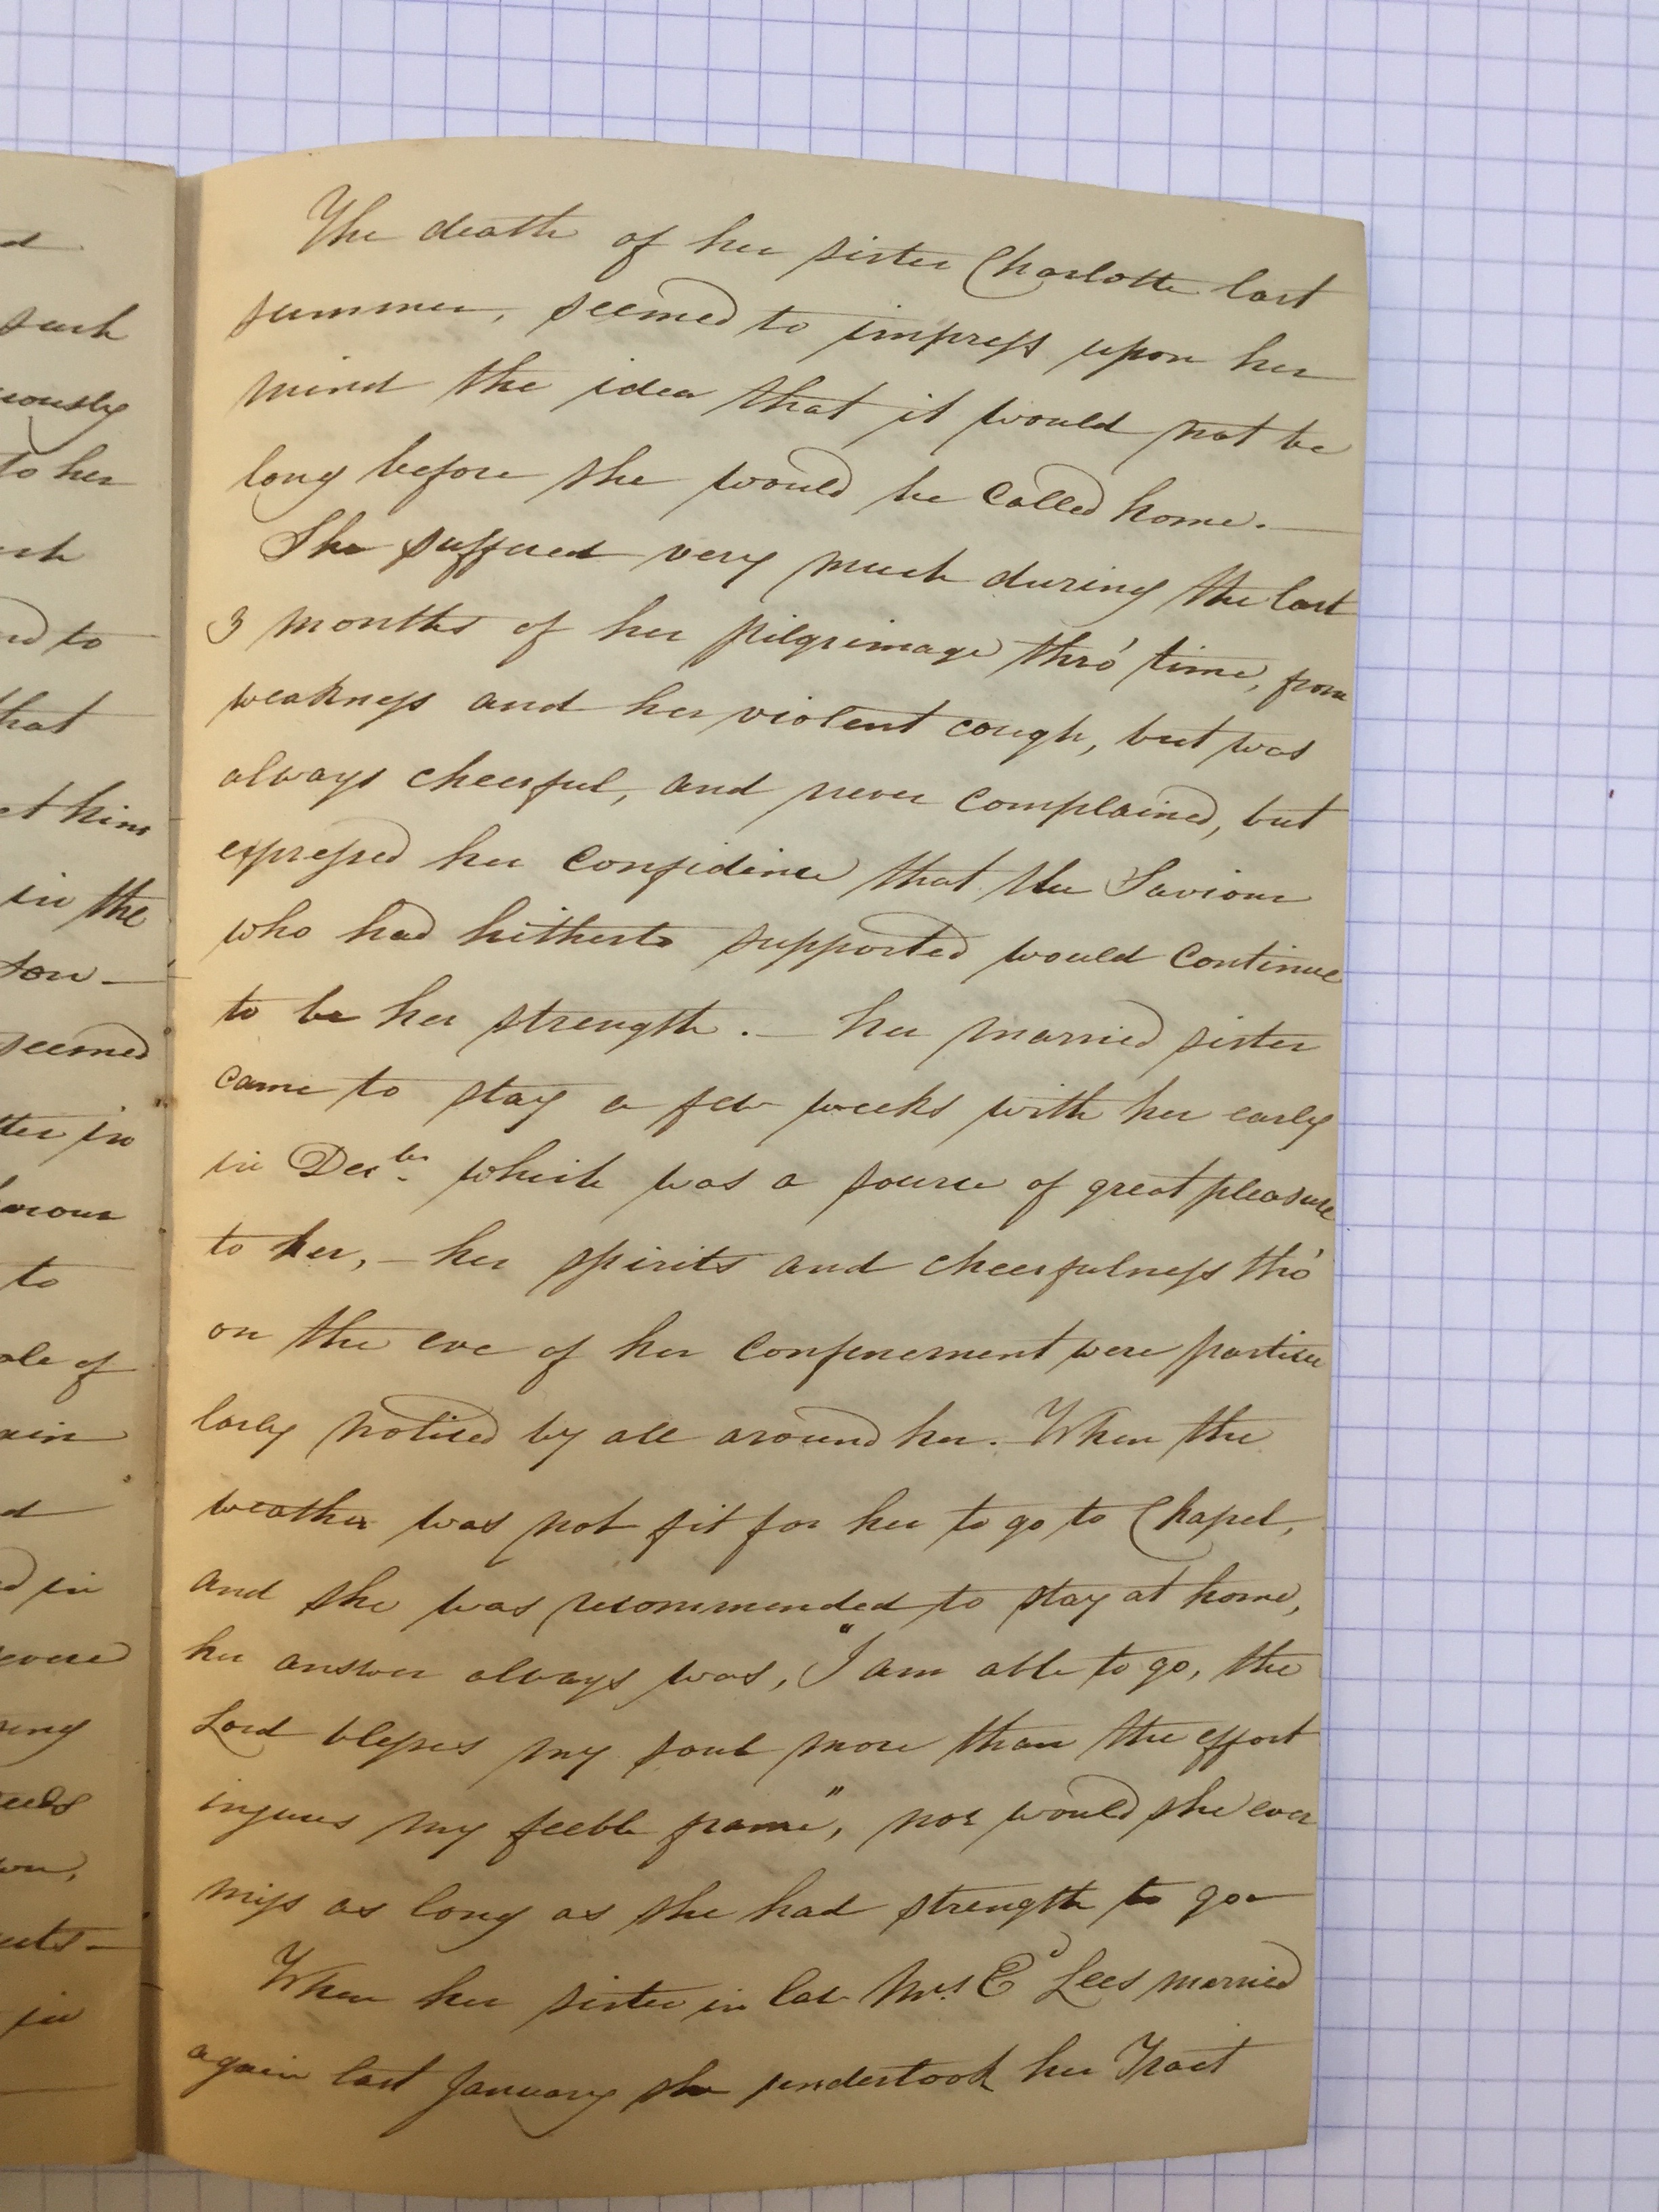 The death of her sister Charlotte last
summer, seemed to impress upon her
mind the idea that it would not be
long before she would be called home. —
She suffered very much during the last
3 months of her pilgrimage thro' time, from
weakness and her violent cough, but was
always cheerful, and never complained, but
expressed her confidence that the Saviour
who had hitherto supported would continue
to be her strength. — her married sister
came to stay a few weeks with her early
in Decbr. which was a source of great pleasure
to her, — her spirits and cheerfulness tho'
on the eve of her confinement were particu
larly noticed by all around her. When the
weather was not fit for her to go to Chapel,
and she was recommended to stay at home,
her answer always was, "I am able to go, the
Lord blesses my soul more than the effort
injures my feeble frame", nor would she ever
miss as long as she had strength to go —
When her sister in law Mrs. Ed Lees married
again last January she undertook her Tract
d
such
iously
to her
nd to
that
et him
in the
seemed
tter in
to
ale of
ain
d
d in
evere
in